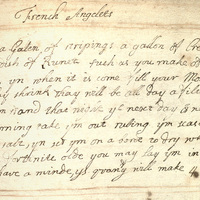 French Angelets
a Galon of striping; a galon of Cre
of Runet such as you make o
yn when it is come fill your Mo
shrink they will be all day a file
and that nise yt next day
orning take ym out rubing ym
salt, yn set ym on a bord to dry
fortnite olde you may lay ym in
have a minde, ys qvanty will make